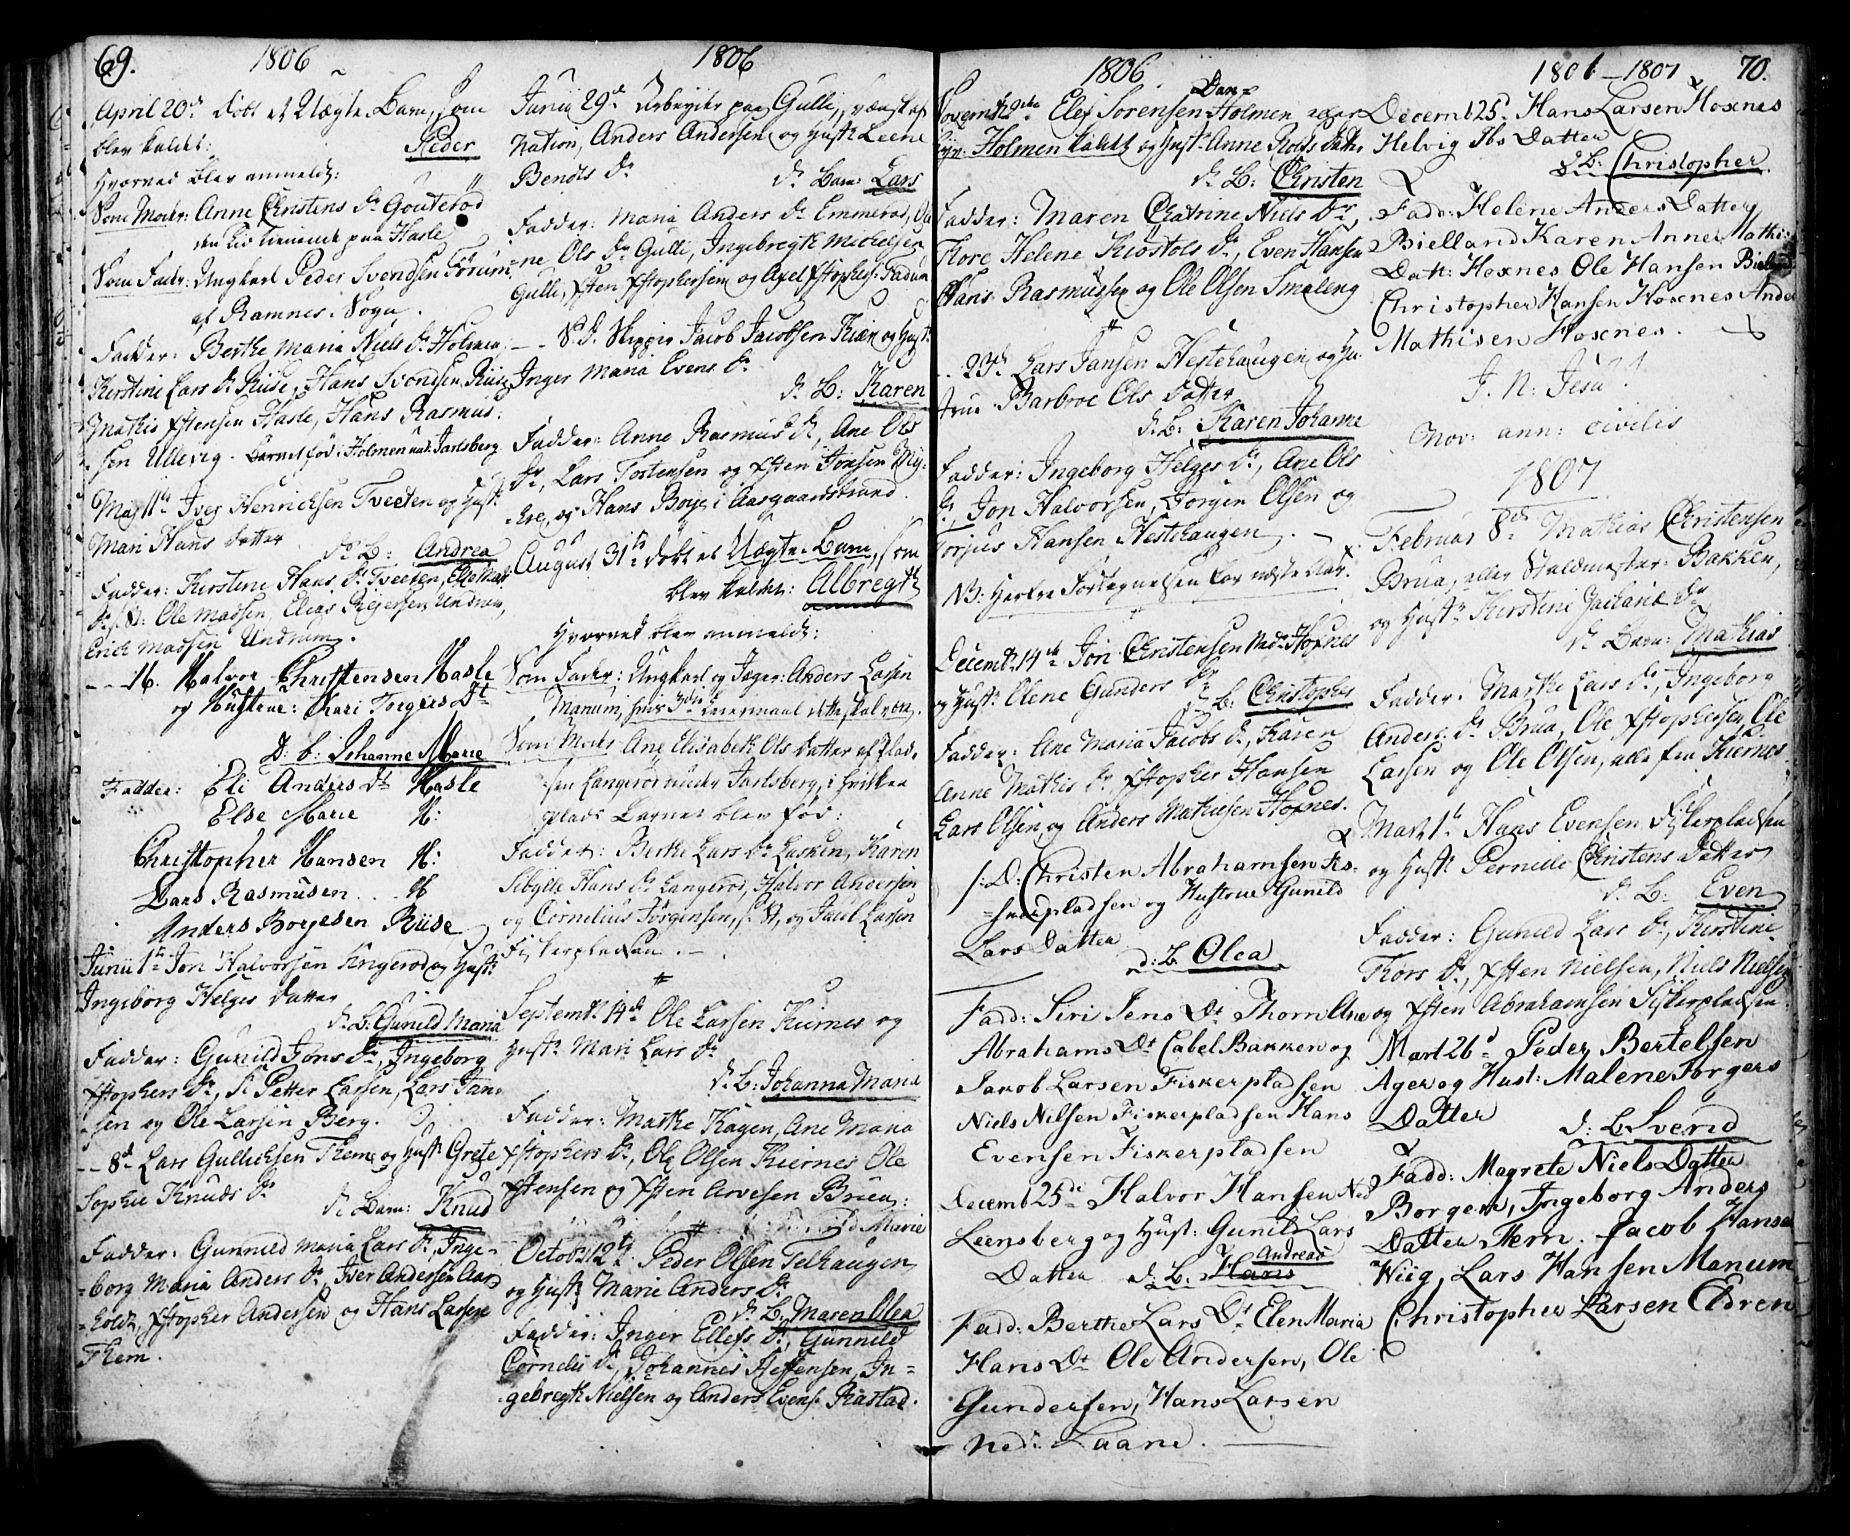 69.
1806
April 20de døbt et Uægte Barn, som
blev kaldet: Peder
hvorved blev anmeldt:
Som Moder: Anne Christens Dr Gouterød
den tid tienende paa Hasle
Som Fader: Ungkarl Peder Svendsen Førum,
af Ramnes Sogn.
Fadder: Berthe Maria Niels Dr Holmen,
Kerstine Lars Dr Riise, Hans Svendsen Riise,
Mathis Xstensen Hasle, Hans Rasmus-
sen Ullevig. Barnet fød i Holmen und. Jarlsberg
Maj 11te Iver Henricksen Tveeten og Hust:
Mari Hans Datter
Dr B: Andrea
Fadder: Kirstine Hans Dr Tveeten, Else Mads
Dr, Ole Madsen, Elias Reiersen Undrum,
Erich Madsen Undrum.
- - 16. Halvor Christensen Hasle
og Hustrue: Kari Torgers Dt
D: b: Johanne Marie
Fadder: Eli Anders Dt Hasle
Else Marie H:
Christopher Hansen H:
Lars Rasmusen . . H
Anders Borjesen Riise
Junii 1te Jon Halvorsen Engerød og Hust:
Ingeborg Helges Datter
Dr B: Gunild Maria
Fadder: Gunild Jons Dr, Ingeborg
Xstophers Dr, S. Petter Larsen, Lars Jan-
sen og Ole Larsen Berg.
- - 8de Lars Gullichsen Them og Hust: Grete
Sophie Knuds Dr
Dr Barn: Knud
Fadder: Gunnild Maria Lars Dr, Inge-
borg Maria Anders Dr, Iver Andersen Aas-
holdt, Xstopher Andersen og Hans Larsen
Them.
1806
Junii 29de Arbeyder paa Gulli, svensk af
Nation, Anders Andersen og Hust: Leene
Bendts Dr
Dr Barn: Lars
Fadder: Maria Anders Dr Emmerød,
ne Ols Dr Gulli, Ingebregth Michelsen
Gulli, Xsten Xstophersen og Axel Xstophers: Fadum
- - S. D. Skipper Jacob Jacobsen Kiær og Hust:
Inger Maria Evens Dr
Dr B: Karen
Fadder: Anne Rasmus Dr, Ane Ols
Dr, Lars Tostensen og Xsten Jonsen
og Hans Boye i Aasgaardstrand.
August 31te døbt et Uægte Barn, som
blev kaldet: Albregth
hvorved blev anmeldt:
Som Fader: Ungkarl og Jæger: Anders Larsen
Manum, hvis 3die Leiermaal dette skal være.
Som Moder Ane Elisabeth Ols Datter af Plad-
sen Langerød under Jarlsberg, i hvilken
plads Barnet blev fød:
Fadder: Berthe Lars Dr Lasken, Karen
Sibylle Hans Dr Langerød, Halvor Andersen
og Cornelius Jørgensen, og Paul Larsen
Fiskerpladsen. -
Septemb: 14de Ole Larsen Kiernes og
Hust: Mari Lars Dr
Dr B: Johanna Maria
Fadder: Marthe Kagen, Ane Maria
Xstophers Dr, Ole Olsen Kiernes Ole
Xstensen og Xsten Arvesen Bruen:
Octob: 12te Peder Olsen Telhaugen
og Hust: Marie Anders Dr
Dr B: Maren Olea
Fadder: Inger Ellefs Dr, Gunnild
Cornelii Dr, Johannes Steffensen, In-
gebregth Nielsen og Anders Evens: Rastad.
1806
Novemb: 2den Elef Sorensen Holmen
Holmen kaldet og Hust: Anne Rolds Datter
Dr B: Christen
Fadder: Maren Chatrine Niels Dr
Flore Helene Kiøstols Dr, Even Hansen
Hans Rasmussen og Ole Olsen Smaleng
- 23de Lars Jansen Hestehaugen og Hu-
strue Barbroe Ols Datter
Dr B: Karen Johanne
Fadder: Ingeborg Helges Dr, Ane Ols
Dr, Jon Halvorsen, Jørgen Olsen og
Torjus Hansen Hestehaugen.
NB: Herfra Fortegnelsen for næste Aar.
Decemb: 14de Jon Christensen Ned: Hoxnes
og Hust: Olene Gunders Dr
Dr B: Christopher
Fadder: Ane Maria Jacobs Dr, Karen
Anne Mathis Dr Xstopher Hansen
Lars Olsen og Anders Mathiesen Hoxnes.
S: D: Christen Abrahamsen Fis-
kerpladsen og Hustrue Gunild
Lars Datter
d: b Olea
Fadd: Siri Jens Dt Thorn Ane
Abrahams Dt Cabel Bakken og
Jakob Larsen Fiskerpladsen
Niels Nilsen Fiskerpladsen Hans
Evensen Fiskerpladsen
Decemb 25de Halvor Hansen Ned
Leensberg og Hust: Gunild Lars
Datter d: B. Hans Andreas
Fadd: Berthe Lars Dt Elen Maria
Hans Dt Ole Andersen, Ole
Gundersen, Hans Larsen
ned: Laane.
1806 - 1807
70.
Decemb 25de Hans Larsen Hoxnes
Helvig Ibs Datter
d: B: Christopher
Fadd: Helene Anders Datter
Bielland Karen Anne Mathi:
Datt: Hoxnes Ole Hansen Bielland
Christopher Hansen Hoxnes Ander
Mathisen Hoxnes.
J. N: Jesu!
Nov: ann: civilis
1807
Februar 8de Mathias Christensen
Brua, eller Staldmester: Bakken,
og Hust: Kerstine Dr
Dr Barn: Mathias
Fadder: Marthe Lars Dr, Ingeborg
Anders Dr Brua, Ole Xstophersen, Ole
Larsen og Ole Olsen, alle fra Kiernes
Mart 1te Hans Evensen Fiskerpladsen
og Hust: Pernille Christens Datter
Dr B: Even
Fadder: Gunild Lars Dr, Kirstine
Thors Dr, Xsten Nielsen, Niels Nielsen
og Xsten Abrahamsen Fiskerpladsen.
Mart 26d Peder Bertelsen
Ager og Hust: Malene Torgers
Datter d: b Sverid
Fadd: Magrete Niels Datter
Borgen, Ingeborg Anders
Datter Them. Jacob Hansen
Wiig, Lars Hansen Manum
Christopher Larsen Eldren